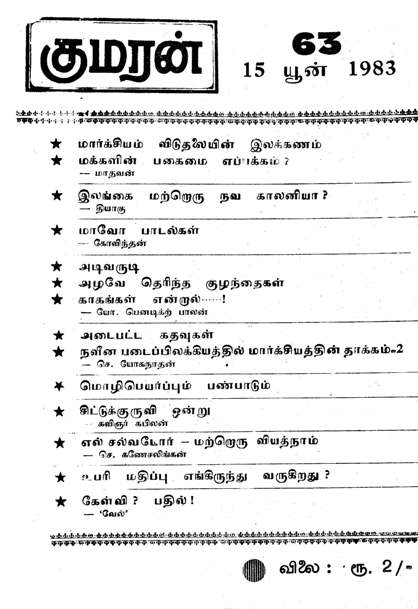 குமரன்
63
15 யூன் 1983
★ மார்க்சியம் விடுதலையின் இலக்கணம்
★ மக்களின் பகைமை எப்பக்கம் ?
— மாதவன்
★ இலங்கை மற்றொரு நவ காலனியா ?
— தியாகு
★ மாவோ பாடல்கள்
— கோவிந்தன்
★ அடிவருடி
★ அழவே தெரிந்த குழந்தைகள்
★ காகங்கள் என்றால்......!
— யோ. பெனடிக்ற் பாலன்
★ அடைபட்ட கதவுகள்
★ நவீன படைப்பிலக்கியத்தில் மார்க்சியத்தின் தாக்கம்-2
— செ. யோகநாதன்
★ மொழிபெயர்ப்பும் பண்பாடும்
★ சிட்டுக்குருவி ஒன்று
— கவிஞர் கபிலன்
★ எல் சல்வடோர் – மற்றொரு வியத்நாம்
— செ. கணேசலிங்கன்
★ உபரி மதிப்பு எங்கிருந்து வருகிறது ?
★ கேள்வி ? பதில் !
— 'வேல்'
விலை : ரூ. 2/-